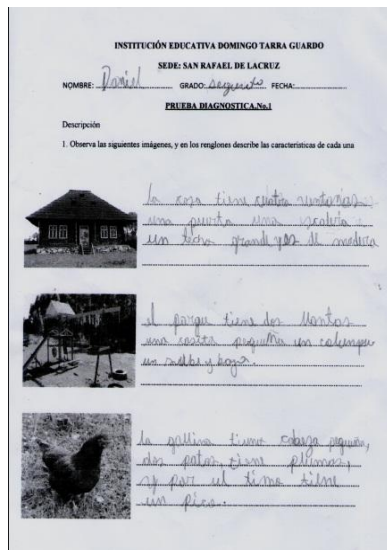 INSTITUCIÓN EDUCATIVA DOMINGO TARRA GUARDO
SEDE: SAN RAFAEL DE LACRUZ
NOMBRE: Daniel GRADO: segundo FECHA:
PRUEBA DIAGNOSTICA.No.1
Descripción
1. Observa las siguientes imágenes, y en los renglones describe las características de cada una
la casa tiene cuatro ventanas
una puerta una escalera
un techo grande y es de madera
el parque tiene dos llantas
una casita pequeña un columpio
sube y baja.
la gallina tiene cabeza pequeña,
dos patas, tiene plumas,
y por el tiene
un pico.